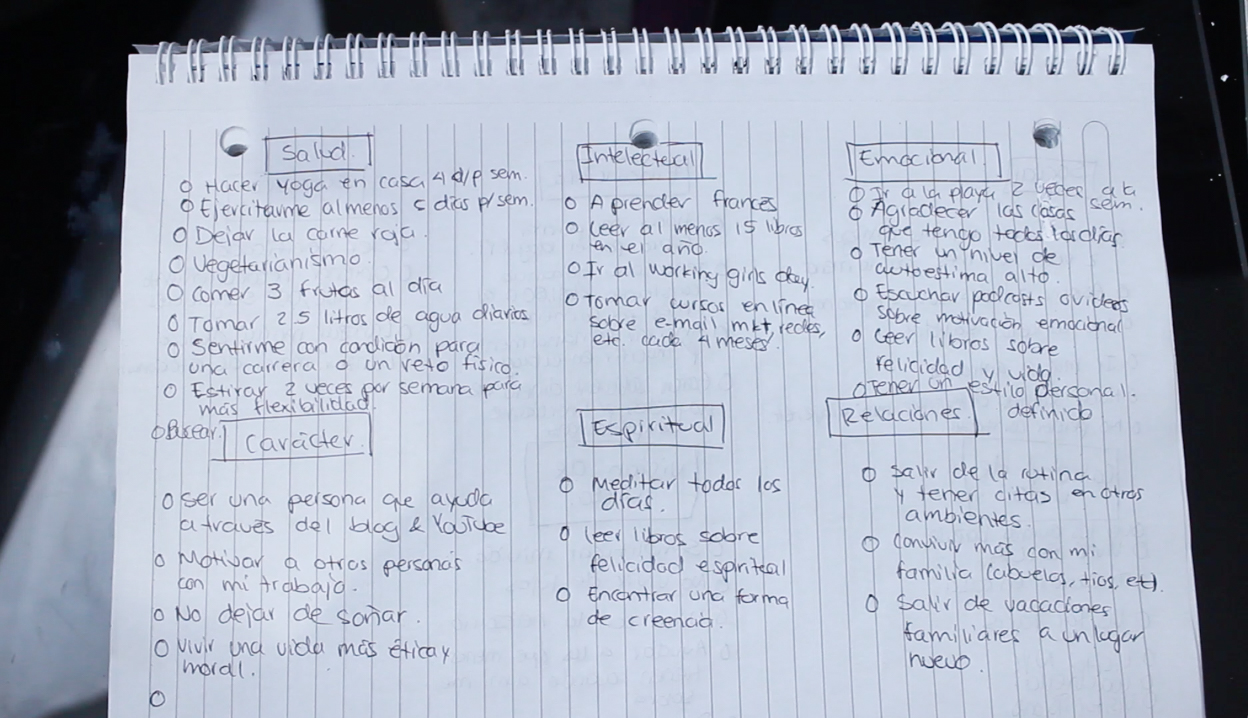 Salud.
o Hacer yoga en casa 4 d/p sem.
o Ejercitarme al menos 5 dias p/sem.
o Dejar la carne roja.
o Vegetarianismo.
o comer 3 frutas al día
o Tomar 2.5 litros de agua diarios
o Sentirme con condición para
una carrera o un reto físico.
o Estirar 2 veces por semana para
más flexibilidad.
o Buscar
Intelectual
o Aprender frances
o Leer al menos 15 libros
en el año.
o Ir al working girls day.
o Tomar cursos en línea
sobre e-mail mkt, redes,
etc. cada 4 meses.
Emocional.
o Ir a la playa 2 veces a la
sem.
o Agradecer las cosas
que tengo todos los días
o Tener un nivel de
autoestima alto.
o Escuchar podcasts o videos
sobre motivación emocional
o Leer libros sobre
felicidad y vida.
o Tener un estilo personal.
definido
Carácter.
o Ser una persona que ayuda
a través del blog & YouTube
o Motivar a otras personas
con mi trabajo.
o No dejar de soñar.
o Vivir una vida más ética y
moral.
o
Espiritual
o Meditar todos los
días.
o leer libros sobre
felicidad espiritual
o Encontrar una forma
de creencia.
Relaciones.
o Salir de la rutina
y tener citas en otros
ambientes.
o Convivir más con mi
familia (abuelos, tios, etc).
o Salir de vacaciones
familiares a un lugar
nuevo.